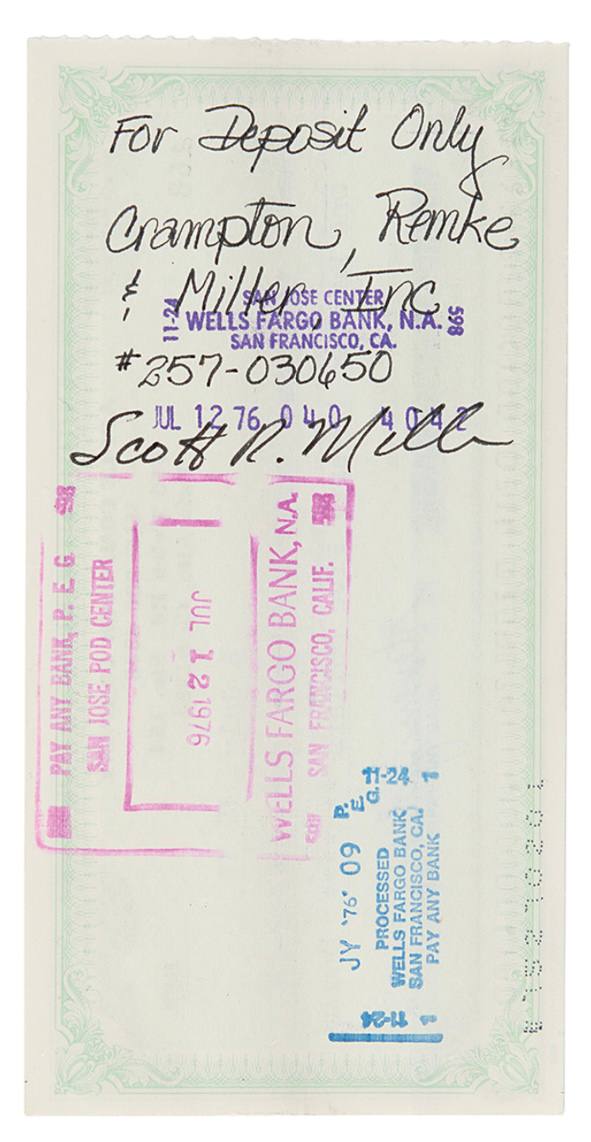 For Deposit Only
Crampton, Remke
& Miller, Inc
SAN JOSE CENTER
11-24 WELLS FARGO BANK, N.A. 598
SAN FRANCISCO, CA.
#257-030650
JUL 12 76 040 4042
Scott R. Miller
PAY ANY BANK, P. E. G.
SAN JOSE POD CENTER
JUL 12 1976
WELLS FARGO BANK, N.A.
SAN FRANCISCO, CALIF.
JY '76' 09 P. E. G. 11-24 1
PROCESSED
WELLS FARGO BANK
SAN FRANCISCO, CA.
PAY ANY BANK
11-24 1